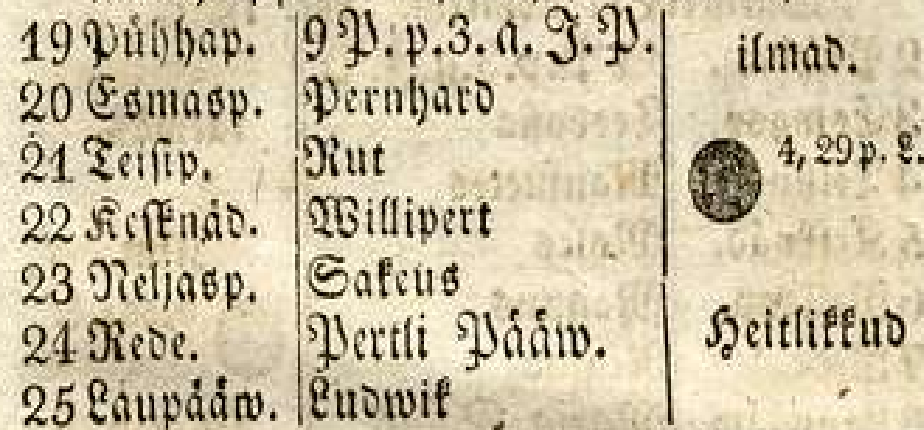 19 Pühhap. 9 P. p. 3. a. J. P.
ilmad.
20 Esmasp. Pernhard
21 Teisip. Rut
4, 29 p. L.
22 Kesknäd. Willipert
23 Neljasp. Sakeus
24 Rede. Pertli Pääw.
Heitlikkud
25 Laupääw. Ludwik